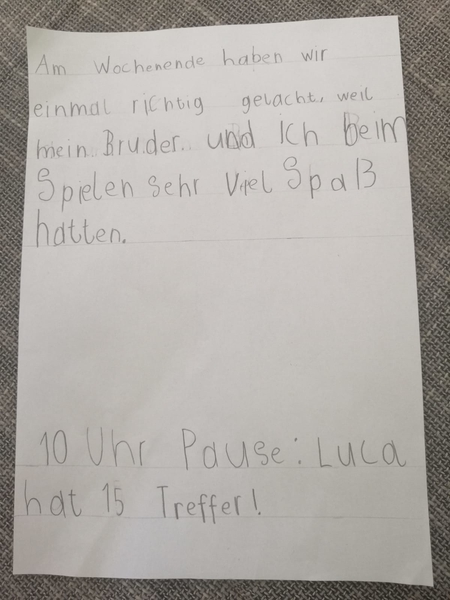 Am Wochenende haben wir
einmal richtig gelacht, weil
mein Bruder und ich beim
Spielen sehr viel Spaß
hatten.
10 Uhr Pause: Luca
hat 15 Treffer!